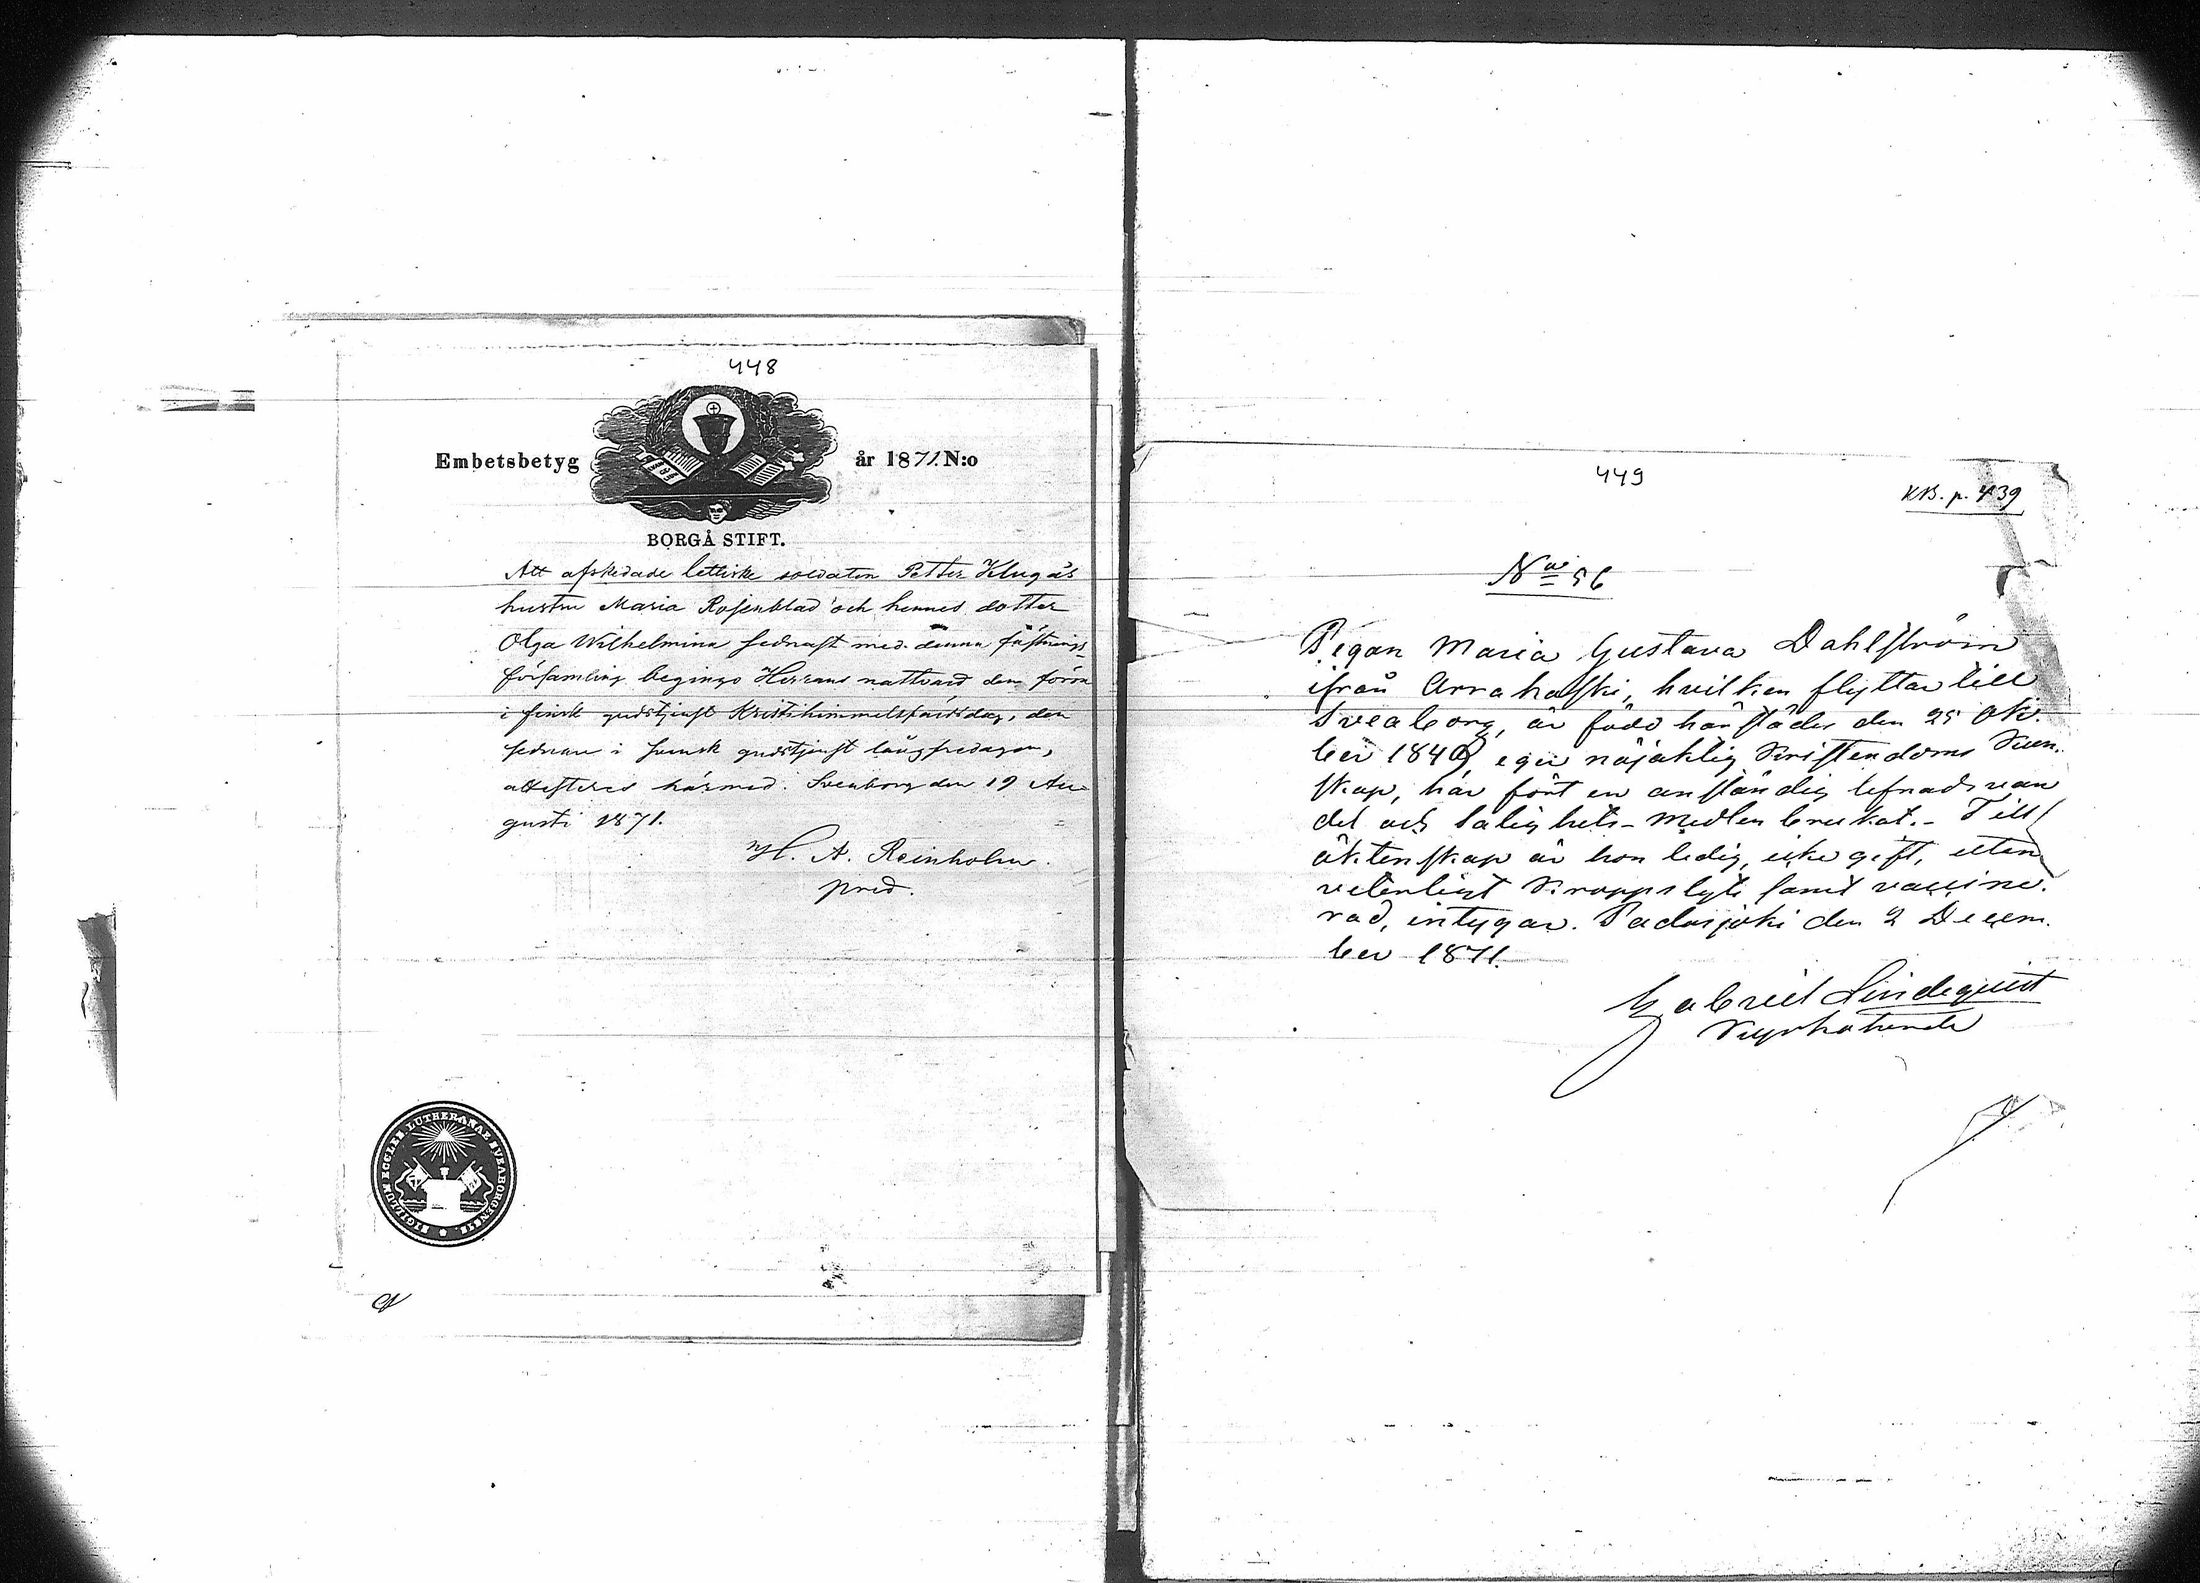 448
Embetsbetyg år 1871. N:o
BORGÅ STIFT.
Att afskedade lettiske soldaten Petter Klugås
hustru Maria Rosenblad och hennes dotter
Olga Wilhelmina sednast med denna fästnings-
församling begingo Herrans nattvard den förra
i finsk gudstjenst Kristihimmelsfärdsdag, den
sednare i svensk gudstjenst långfredagen,
attesteras härmed. Sveaborg den 19 Au-
gusti 1871.
H. A. Reinholm.
pred.
SIGILLUM ECCLES. LUTHERANAE SVEABORGENSIS.
449
KB. p. 439
No 56
Pigan Maria Gustava Dahlström
ifrån Arrakoski, hvilken flyttar till
Sveaborg, är född härstädes den 25 Okt.
ber 1840, eger nöjaktig Kristendoms Kun-
skap, har fört en anständig lefnadsvan
del och Salighets-Medlen brukat. - Till
äktenskap är hon ledig, icke gift, utan
veterligt Kroppslyte samt vaccine-
rad, intygar. Padasjoki den 2 Decem-
ber 1871.
Gabriel Lindequist
Kyrkoherde